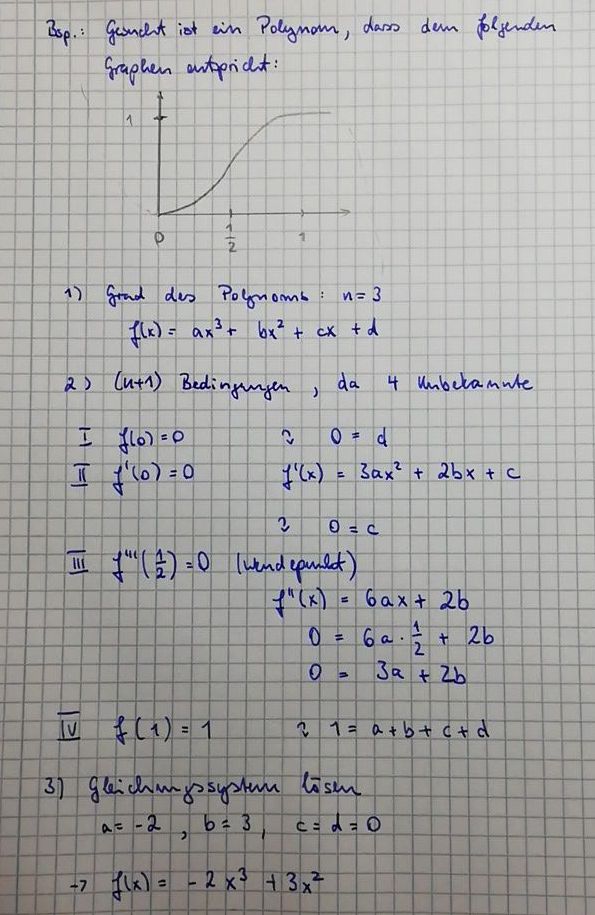 Bsp.: Gesucht ist ein Polynom, dass dem folgenden
Graphen entspricht:
1
0 1/2 1
1) Grad des Polynoms: n=3
f(x) = ax³ + bx² + cx + d
2) (n+1) Bedingungen, da 4 Unbekannte
I f(0)=0 ⇝ 0 = d
II f'(0)=0 f'(x) = 3ax² + 2bx + c
⇝ 0=c
III f'''(1/2)=0 (Wendepunkt)
f''(x) = 6ax + 2b
0 = 6a · 1/2 + 2b
0 = 3a + 2b
IV f(1)=1 ⇝ 1= a+b+c+d
3) Gleichungssystem lösen
a=-2, b=3, c=d=0
→ f(x) = -2x³ +3x²